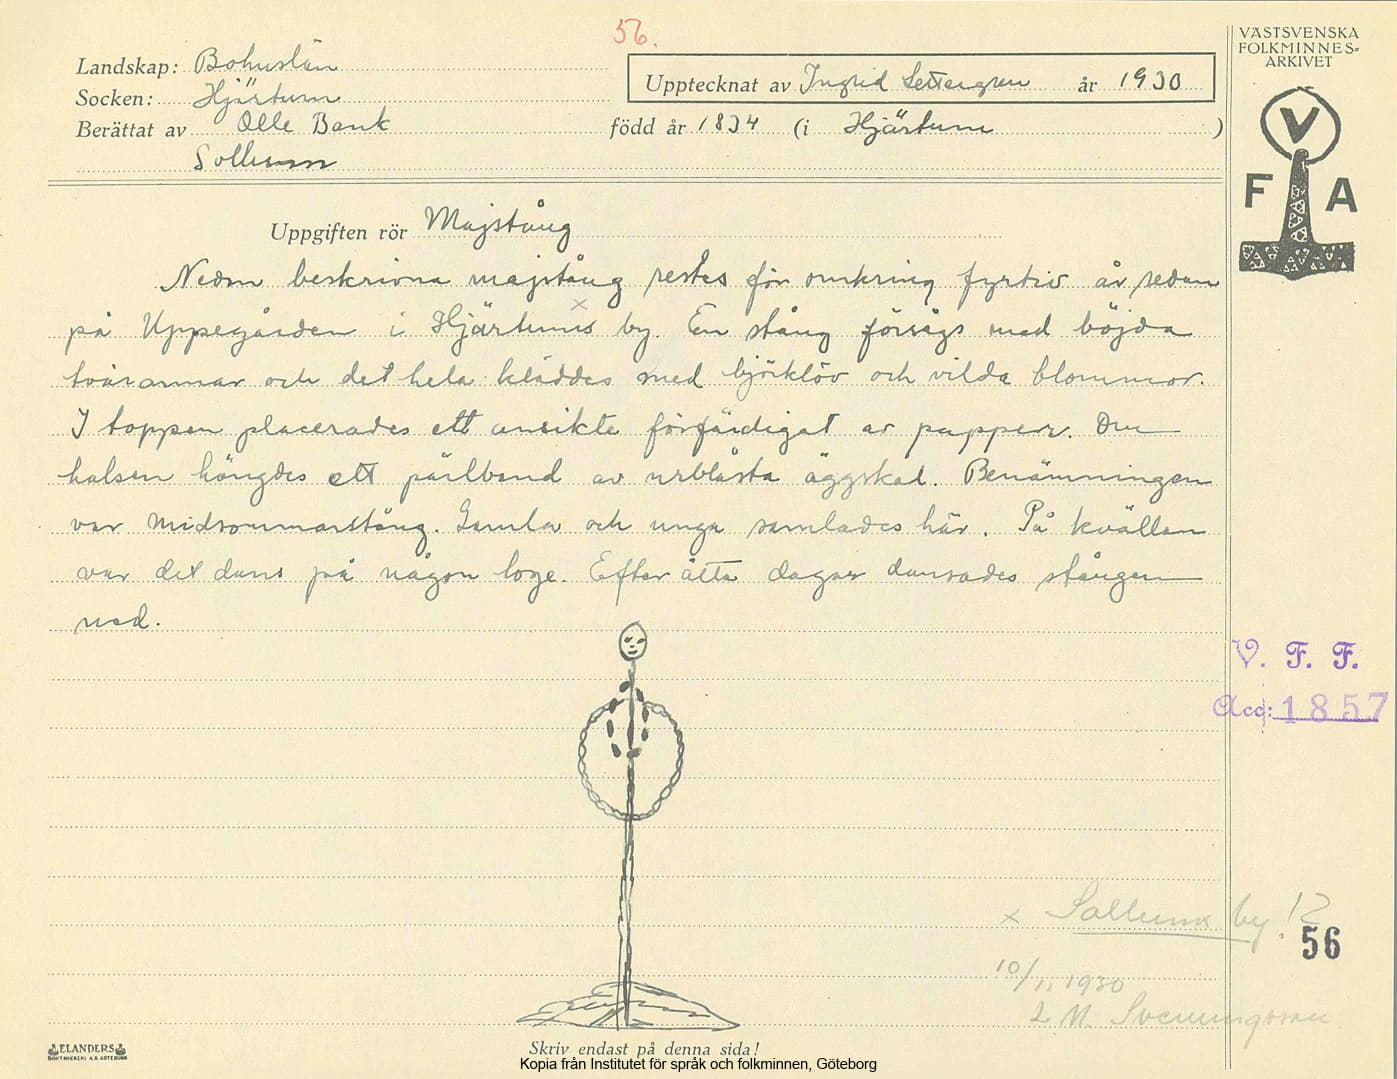 56.
VÄSTSVENSKA
FOLKMINNES=
ARKIVET
V
F A
Landskap: Bohuslän
Upptecknat av Ingrid Settergren år 1930
Socken: Hjärtum
Berättat av Olle Bank född år 1834 (i Hjärtum )
Sollum
Uppgiften rör Majstång
Nedan beskrivna majstång restes för omkring fyrtio år sedan
på Uppegården i Hjärtums x by. En stång försågs med böjda
tvärarmar och det hela kläddes med björklöv och vilda blommor.
I toppen placerades ett ansikte förfärdigat av papper. Om
halsen hängdes ett pärlband av urblåsta äggskal. Benämningen
var midsommarstång. Gamla och unga samlades här. På kvällen
var det dans på någon loge. Efter åtta dagar dansades stången
ned.
V. F. F.
Acc: 1857
x Sollums by. 12
56
10/11 1930
L M Svenungsson
ELANDERS
BOKTRYCKERI A.B. GÖTEBORG
Skriv endast på denna sida!
Kopia från Institutet för språk och folkminnen, Göteborg